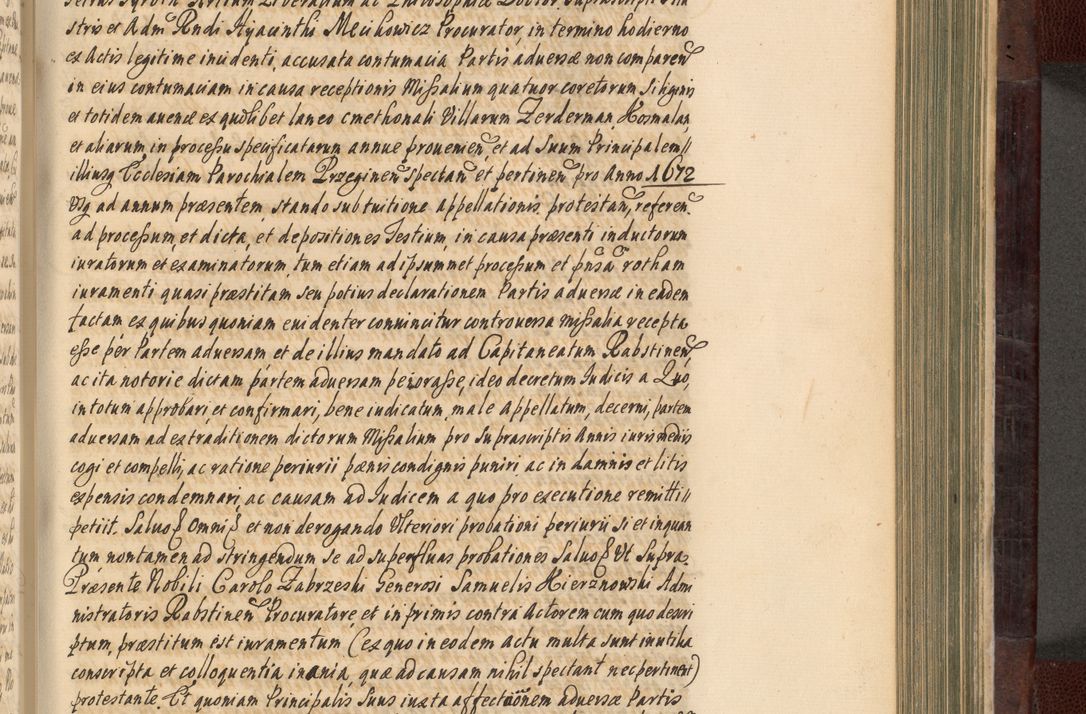 Petrus Artium Liberalium ac Philosophiæ Doctor suprascripti
stris et Adm Rndi Hyacinthi Mecihowicz Procurator, in termino hodierno
ex Actis legitime incidenti, accusata contumacia Partis adversæ non comparen
in eius contumaciam in causa receptionis Missalium quatuor coretorum Siliginis
et totidem auenæ ex quolibet laneo cmethonali Villarum Zerderman, Kosmalan,
et aliarum, in processu specificatarum annue prouenien, et ad Suum Principalem//
illiusq Ecclesiam Parochialem Przeginen spectan et pertinen pro Anno 1672
Usq ad annum præsentem stando sub tuitione appellationis protestan, referen
ad processum, et dicta, et depositiones Testium, in causa præsenti inductorum
iuratorum et examinatorum, tum etiam ad ipsummet processum et pnsa rotham
iuramenti quasi præstitam seu potius declarationem Partis aduersæ in eadem
factam ex quibus quoniam euidenter conuincitur controuersa Missalia recepta
esse per Partem aduersam et de illius mandato ad Capitaneatum Rabstinen,
ac ita notorie dictam partem aduersam peiorasse, ideo decretum Iudicis a Quo,
in totum approbari et confirmari, bene iudicatum, male Appellatum, decerni, partem
aduersam ad extraditionem dictorum Missalium pro Suprascriptis Annis iuris medis
cogi et compelli, ac ratione periurii pænis condignis puniri ac in damnis et litis
expensis condemnari, ac causam ad Iudicem a quo pro executione remitti//
petiit. Saluo omni et non derogando Ulteriori probationi periurii si et inquan
tum non tamen ad stringendum se ad superfluas probationes Saluo Ut Supra:
Præsente Nobili Carolo Zabrzeski Generosi Samuelis Kierznowski Admi
nistratoris Rabstinen Procuratore, et in primis contra Actorem cum quo descri
ptum, præstitum est iuramentum (ex quo in eodem actu multa sunt inutilia
conscripta et colloquentia inania, quæ ad causam nihil spectant nec pertinent)
protestante. Et quoniam Principalis Suus iuxta affectionem aduersæ Partis